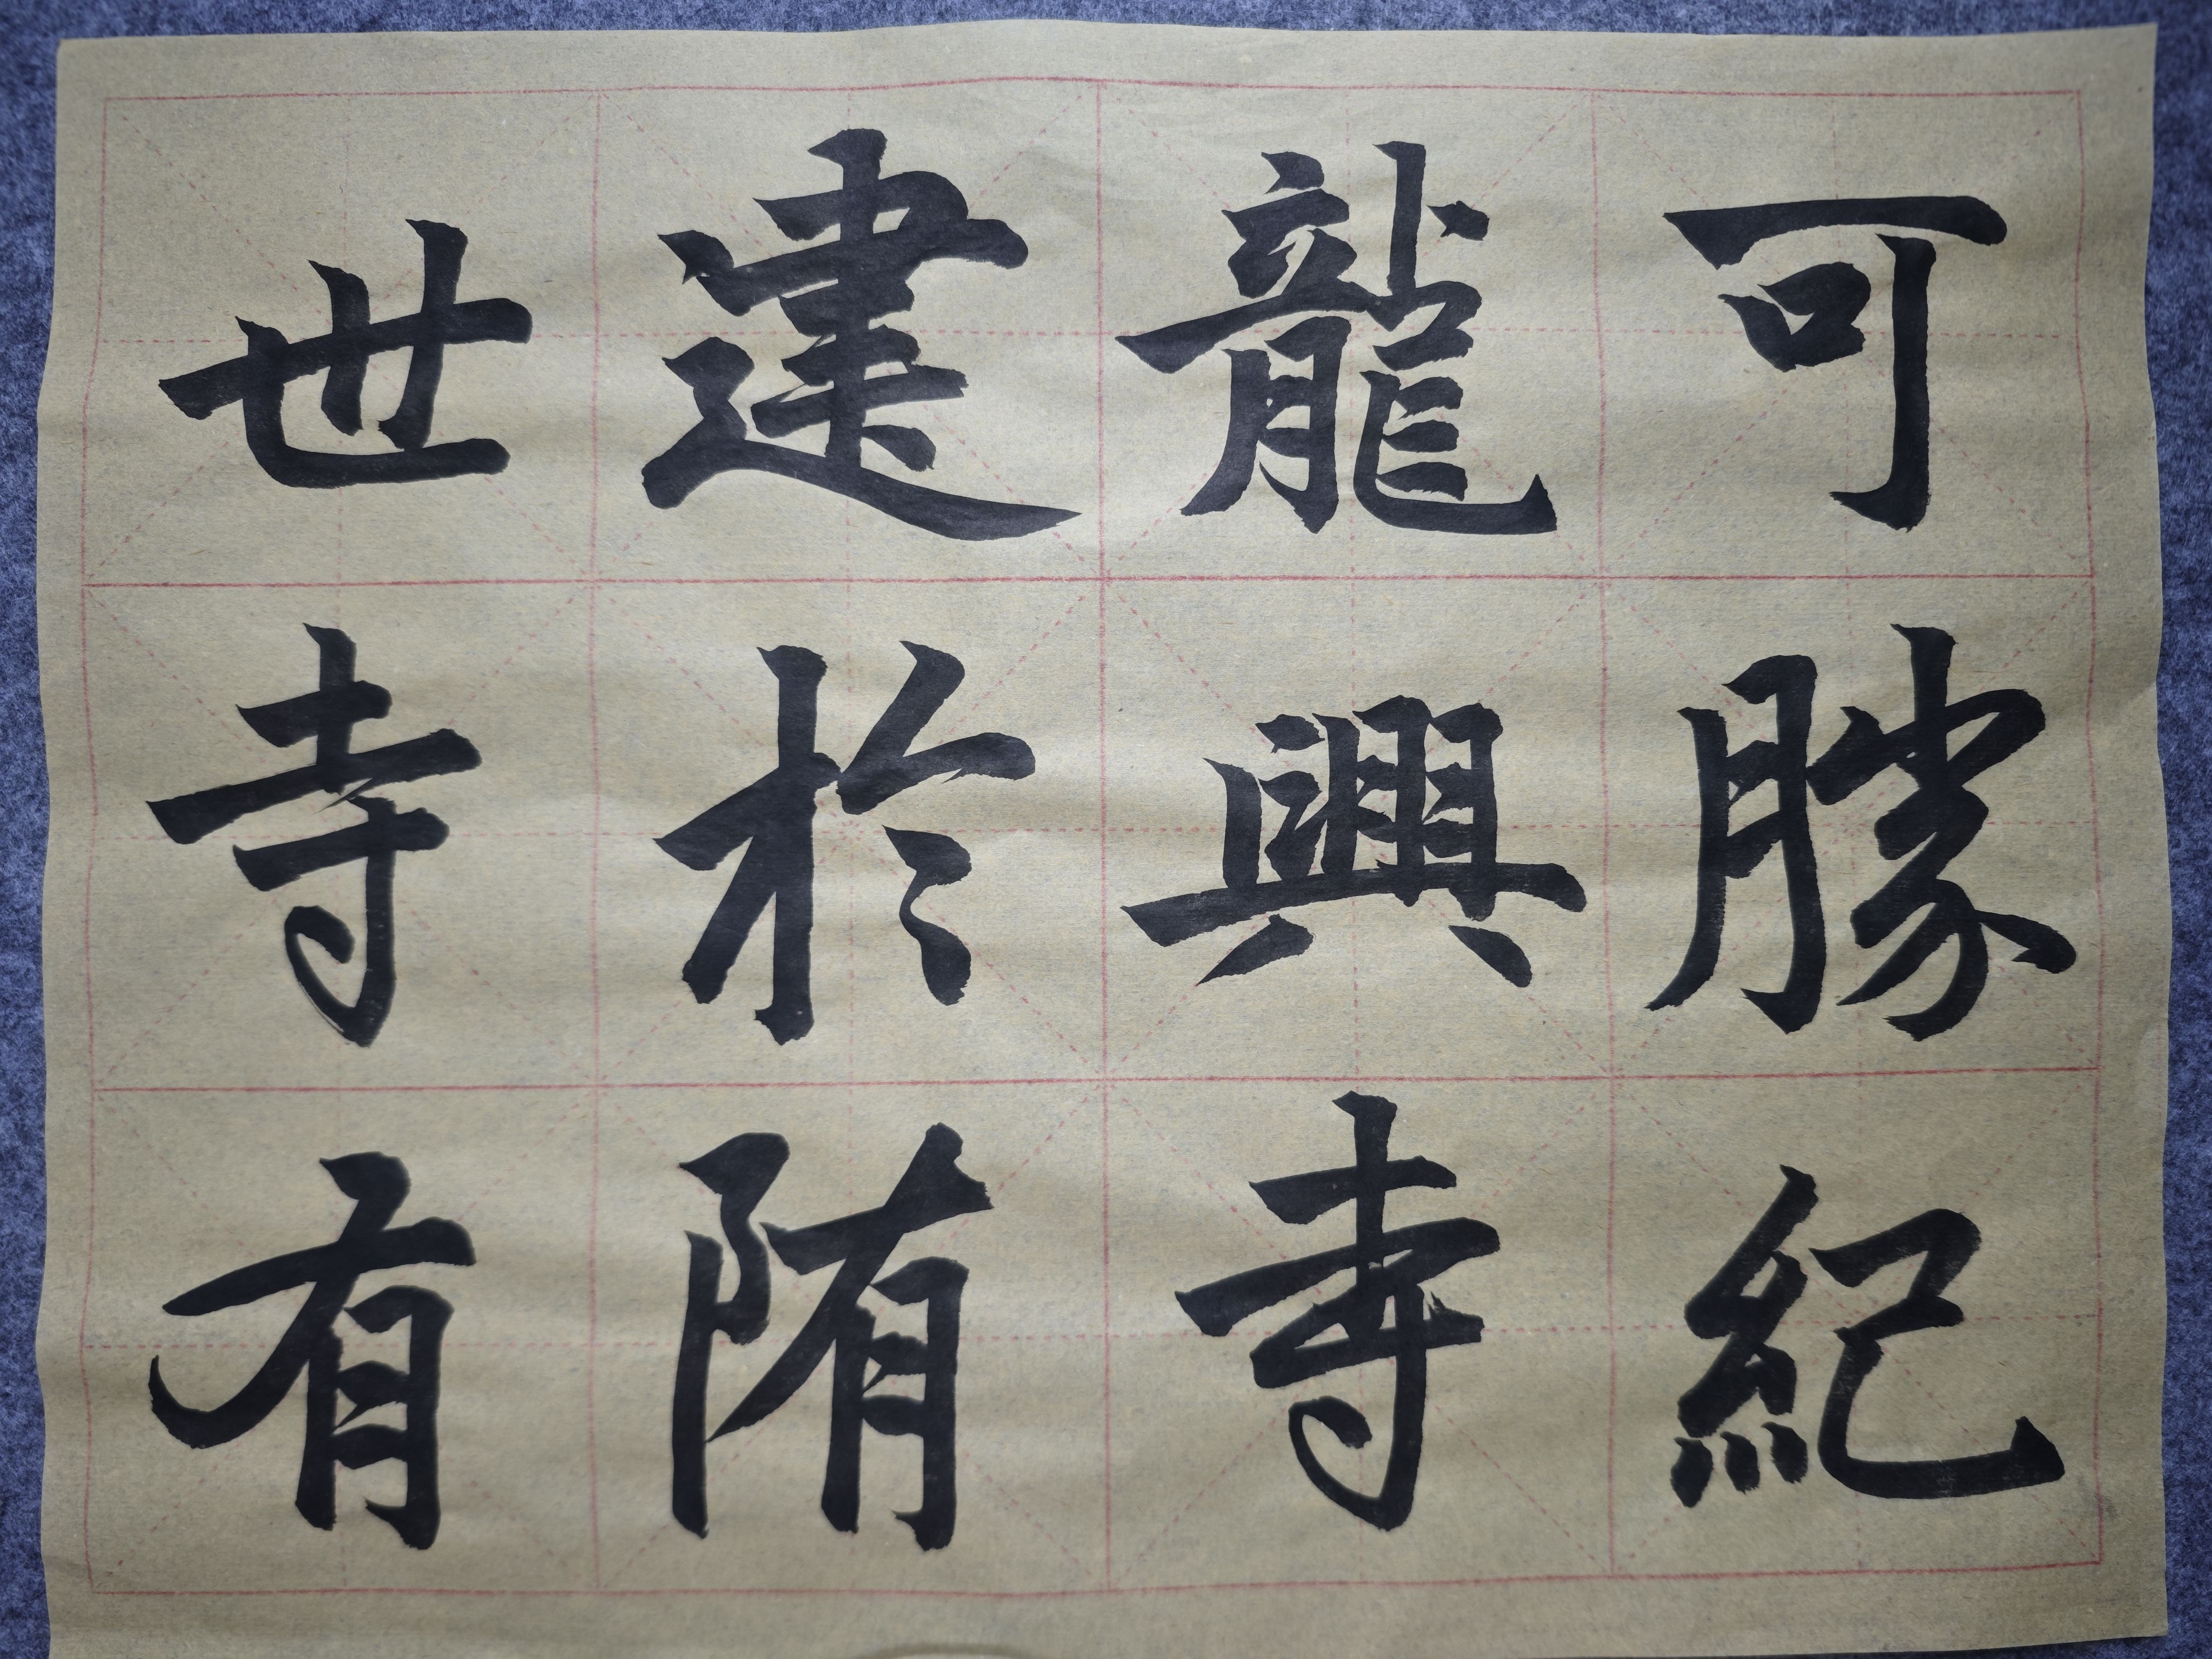 可勝紀
龍興寺
建於隋
世寺有